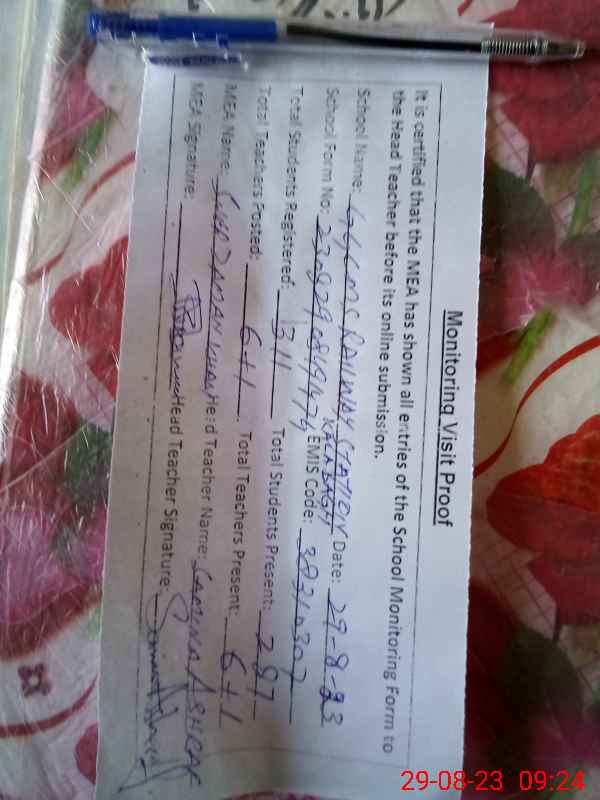 Monitoring Visit Proof
It is certified that the MEA has shown all entries of the School Monitoring Form to
the Head Teacher before its online submission.
School Name: RAILWAY STATION KALABAGH Date: 29-8-23
School Form No: EMIS Code: 38310307
Total Students Registered: 311 Total Students Present: 287
Total Teachers Posted: 6+1 Total Teachers Present: 6+1
MEA Name: ZAMAN KHAN Head Teacher Name: SAMINA ASHRAF
MEA Signature: Head Teacher Signature:
29-08-23 09:24